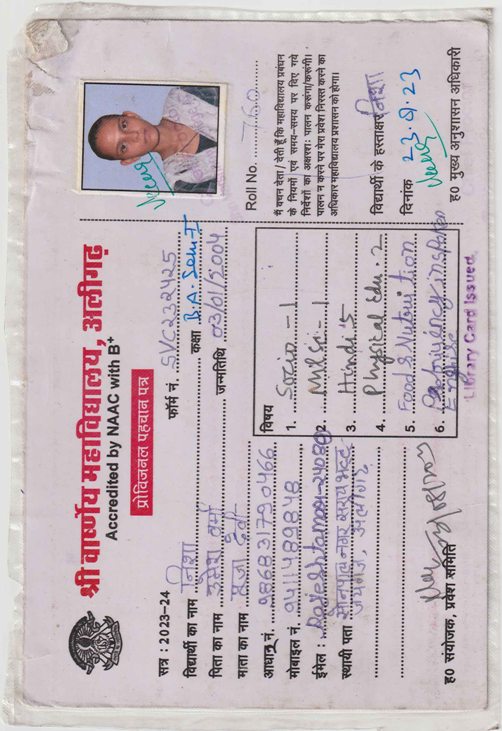 श्री वार्ष्णेय महाविद्यालय, अलीगढ़
Accredited by NAAC with B+
प्रोविजनल पहचान पत्र
सत्र : 2023–24
फॉर्म नं. SVC232425
विद्यार्थी का नाम निशा
कक्षा B.A. Sem-I
पिता का नाम उमेश वर्मा
जन्मतिथि 03/01/2004
माता का नाम देवी
आधार नं. 986831790466
मोबाइल नं. 9411489848
ईमेल :
स्थायी पता नगर सराय
जयगंज, अलीगढ़
ह0 संयोजक, प्रवेश समिति
विषय
1. Socio - 1
2. Mil Sc. - 1
3. Hindi 5
4. Physical Edu. 2
5. Food & Nutrition
6.
Library Card Issued
Roll No. 760
मैं वचन देता / देती हूँ कि महाविद्यालय प्रबंधन
के नियमों एवं समय–समय पर दिए गये
निर्देशों का अक्षरशः पालन करूंगा/करूंगी।
पालन न करने पर मेरा प्रवेश निरस्त करने का
अधिकार महाविद्यालय प्रशासन को होगा।
विद्यार्थी के हस्ताक्षर निशा
दिनांक 23
ह0 मुख्य अनुशासन अधिकारी